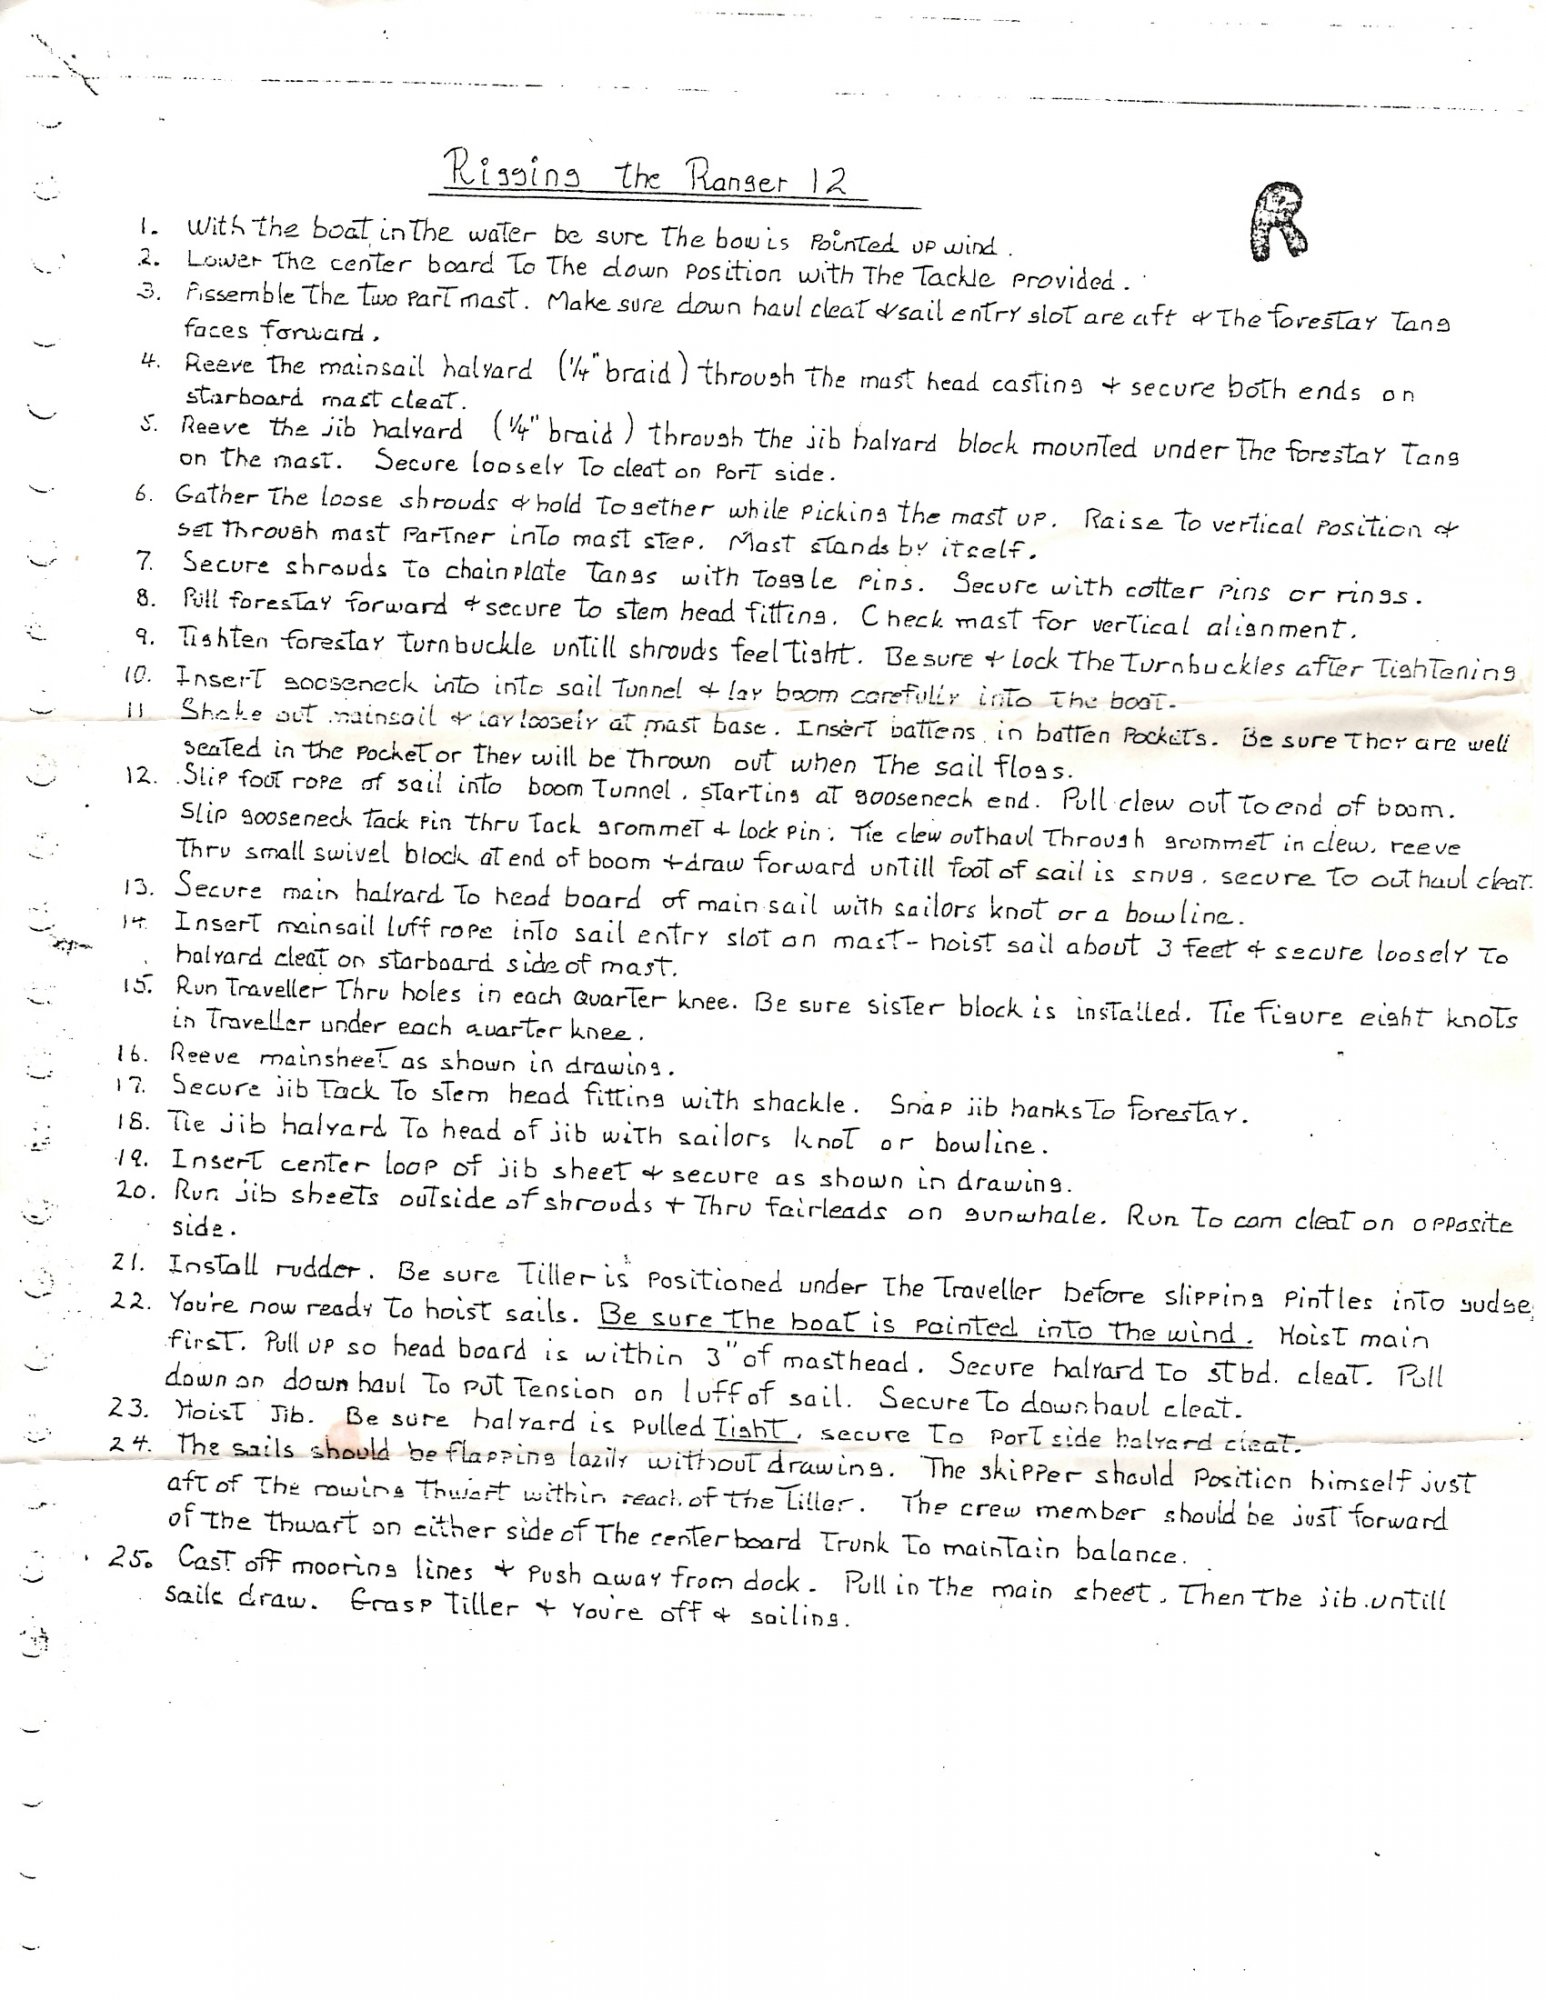 Rigging the Ranger 12
R
1. With the boat in the water be sure the bow is pointed up wind.
2. Lower the center board to the down position with the tackle provided.
3. Assemble the two part mast. Make sure down haul cleat & sail entry slot are aft & the forestay tang
faces forward.
4. Reeve the mainsail halyard (1/4" braid) through the mast head casting + secure both ends on
starboard mast cleat.
5. Reeve the jib halyard (1/4" braid) through the jib halyard block mounted under the forestay tang
on the mast. Secure loosely to cleat on port side.
6. Gather the loose shrouds & hold together while picking the mast up. Raise to vertical position &
set through mast partner into mast step. Mast stands by itself.
7. Secure shrouds to chainplate tangs with toggle pins. Secure with cotter pins or rings.
8. Pull forestay forward & secure to stem head fitting. Check mast for vertical alignment.
9. Tighten forestay turnbuckle untill shrouds feel tight. Be sure & lock the turnbuckles after tightening
10. Insert gooseneck into into sail tunnel & lay boom carefully into the boat.
11 Shake out mainsail & lay loosely at mast base. Insert battens in batten pockets. Be sure they are well
seated in the pocket or they will be thrown out when the sail flogs.
12. Slip foot rope of sail into boom tunnel, starting at gooseneck end. Pull clew out to end of boom.
Slip gooseneck tack pin thru tack grommet & lock pin. Tie clew outhaul through grommet in clew, reeve
thru small swivel block at end of boom & draw forward untill foot of sail is snug, secure to out haul cleat.
13. Secure main halyard to head board of main sail with sailors knot or a bowline.
14. Insert mainsail luff rope into sail entry slot on mast - hoist sail about 3 feet & secure loosely to
halyard cleat on starboard side of mast.
15. Run traveller thru holes in each quarter knee. Be sure sister block is installed. Tie figure eight knots
in traveller under each quarter knee.
16. Reeve mainsheet as shown in drawing.
17. Secure jib tack to stem head fitting with shackle. Snap jib hanks to forestay.
18. Tie jib halyard to head of jib with sailors knot or bowline.
19. Insert center loop of jib sheet & secure as shown in drawing.
20. Run jib sheets outside of shrouds + thru fairleads on gunwhale. Run to cam cleat on opposite
side.
21. Install rudder. Be sure tiller is positioned under the traveller before slipping pintles into gudge
22. You're now ready to hoist sails. Be sure the boat is pointed into the wind. Hoist main
first. Pull up so head board is within 3" of masthead. Secure halyard to stbd. cleat. Pull
down on down haul to put tension on luff of sail. Secure to downhaul cleat.
23. Hoist Jib. Be sure halyard is pulled tight, secure to port side halyard cleat.
24. The sails should be flapping lazily without drawing. The skipper should position himself just
aft of the rowing thwart within reach of the tiller. The crew member should be just forward
of the thwart on either side of the centerboard trunk to maintain balance.
25. Cast off mooring lines + push away from dock. Pull in the main sheet, then the jib untill
sails draw. Grasp tiller + you're off & sailing.